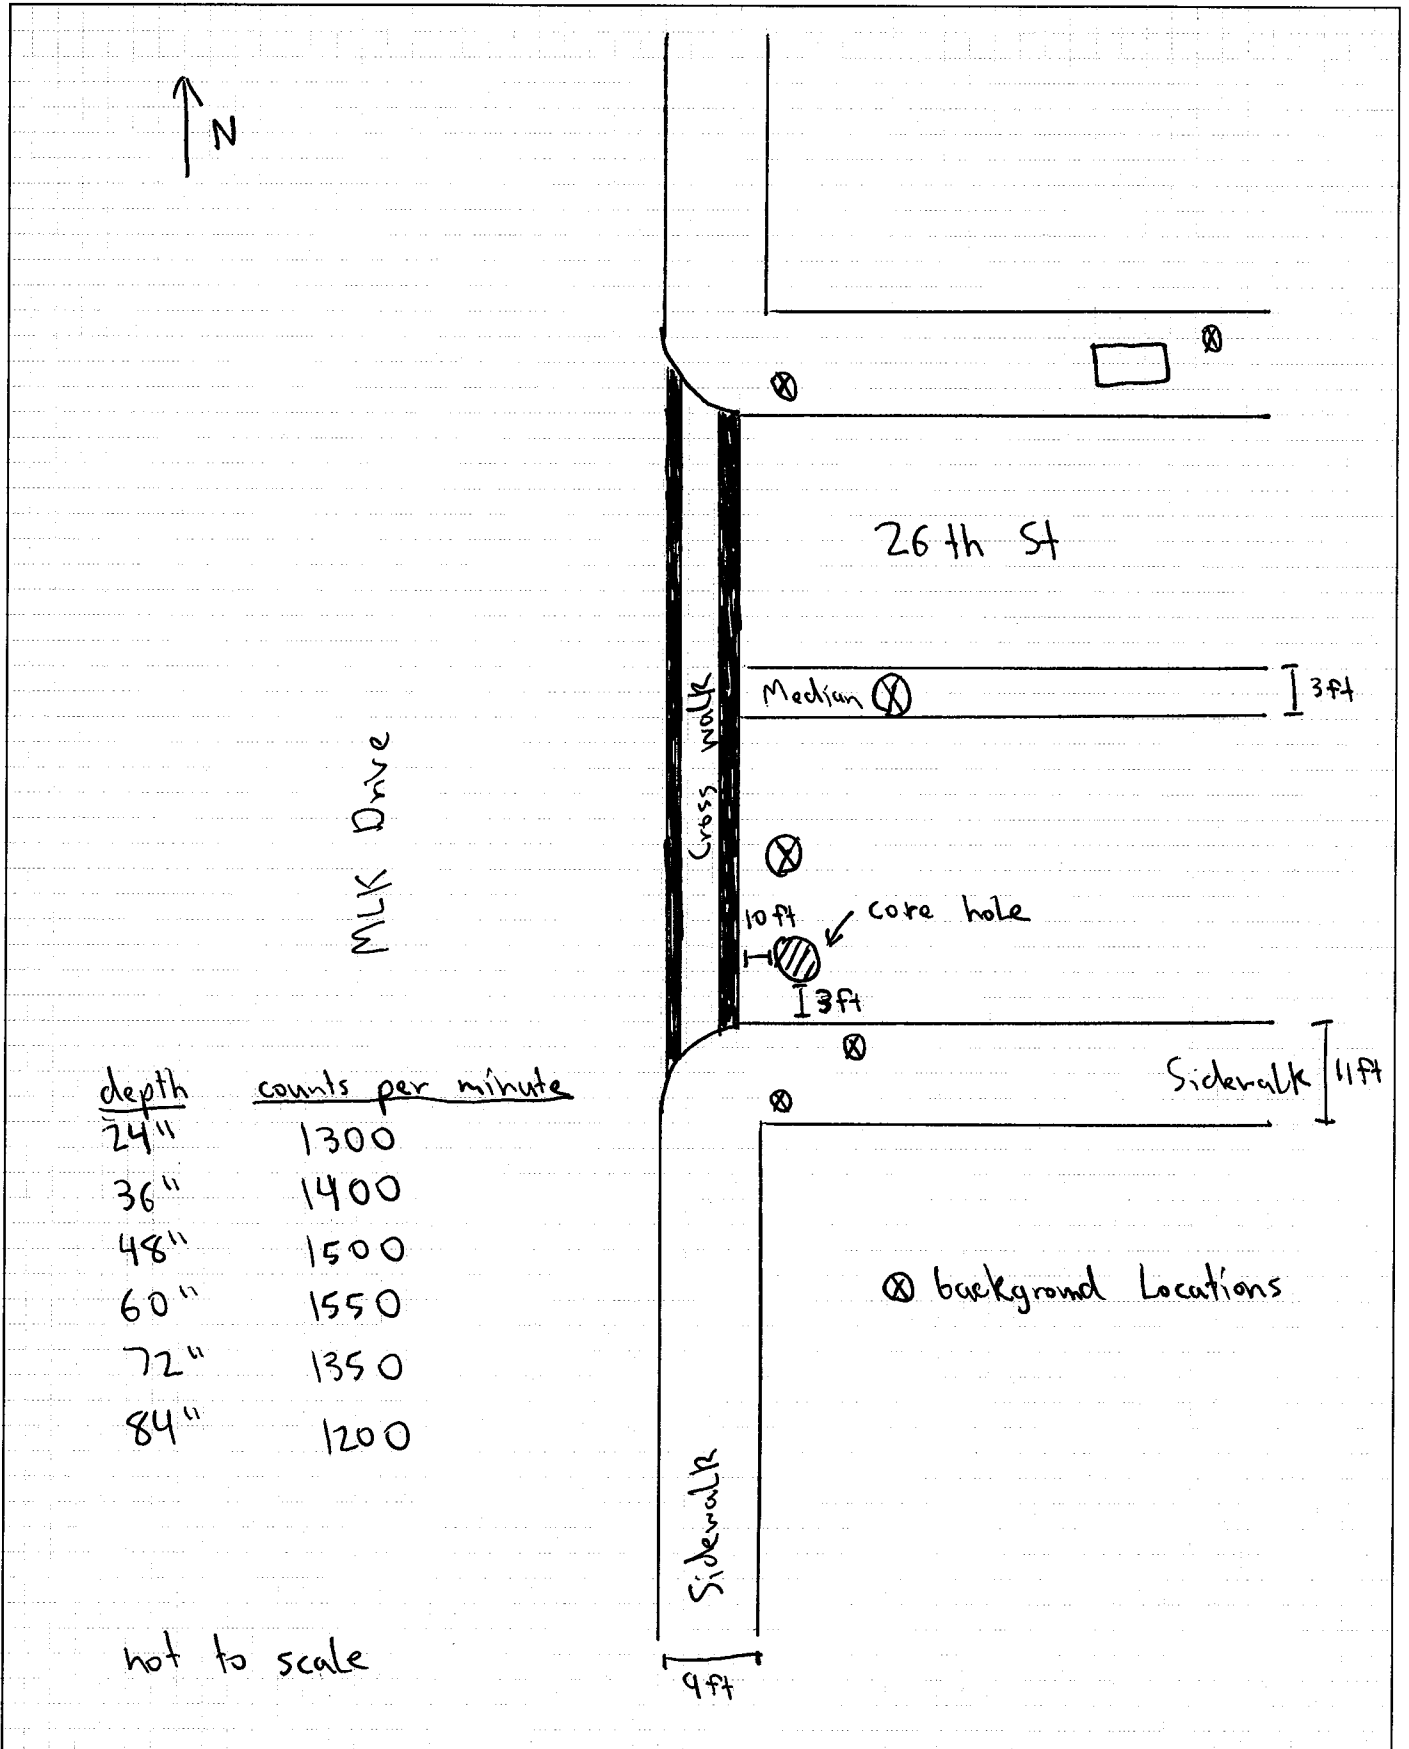 N
26th St
Median
3ft
Cross walk
MLK Drive
10ft
core hole
3ft
Sidewalk
11ft
depth counts per minute
24" 1300
36" 1400
48" 1500
60" 1550
72" 1350
84" 1200
⊗ backgrond Locations
Sidewalk
not to scale
9ft